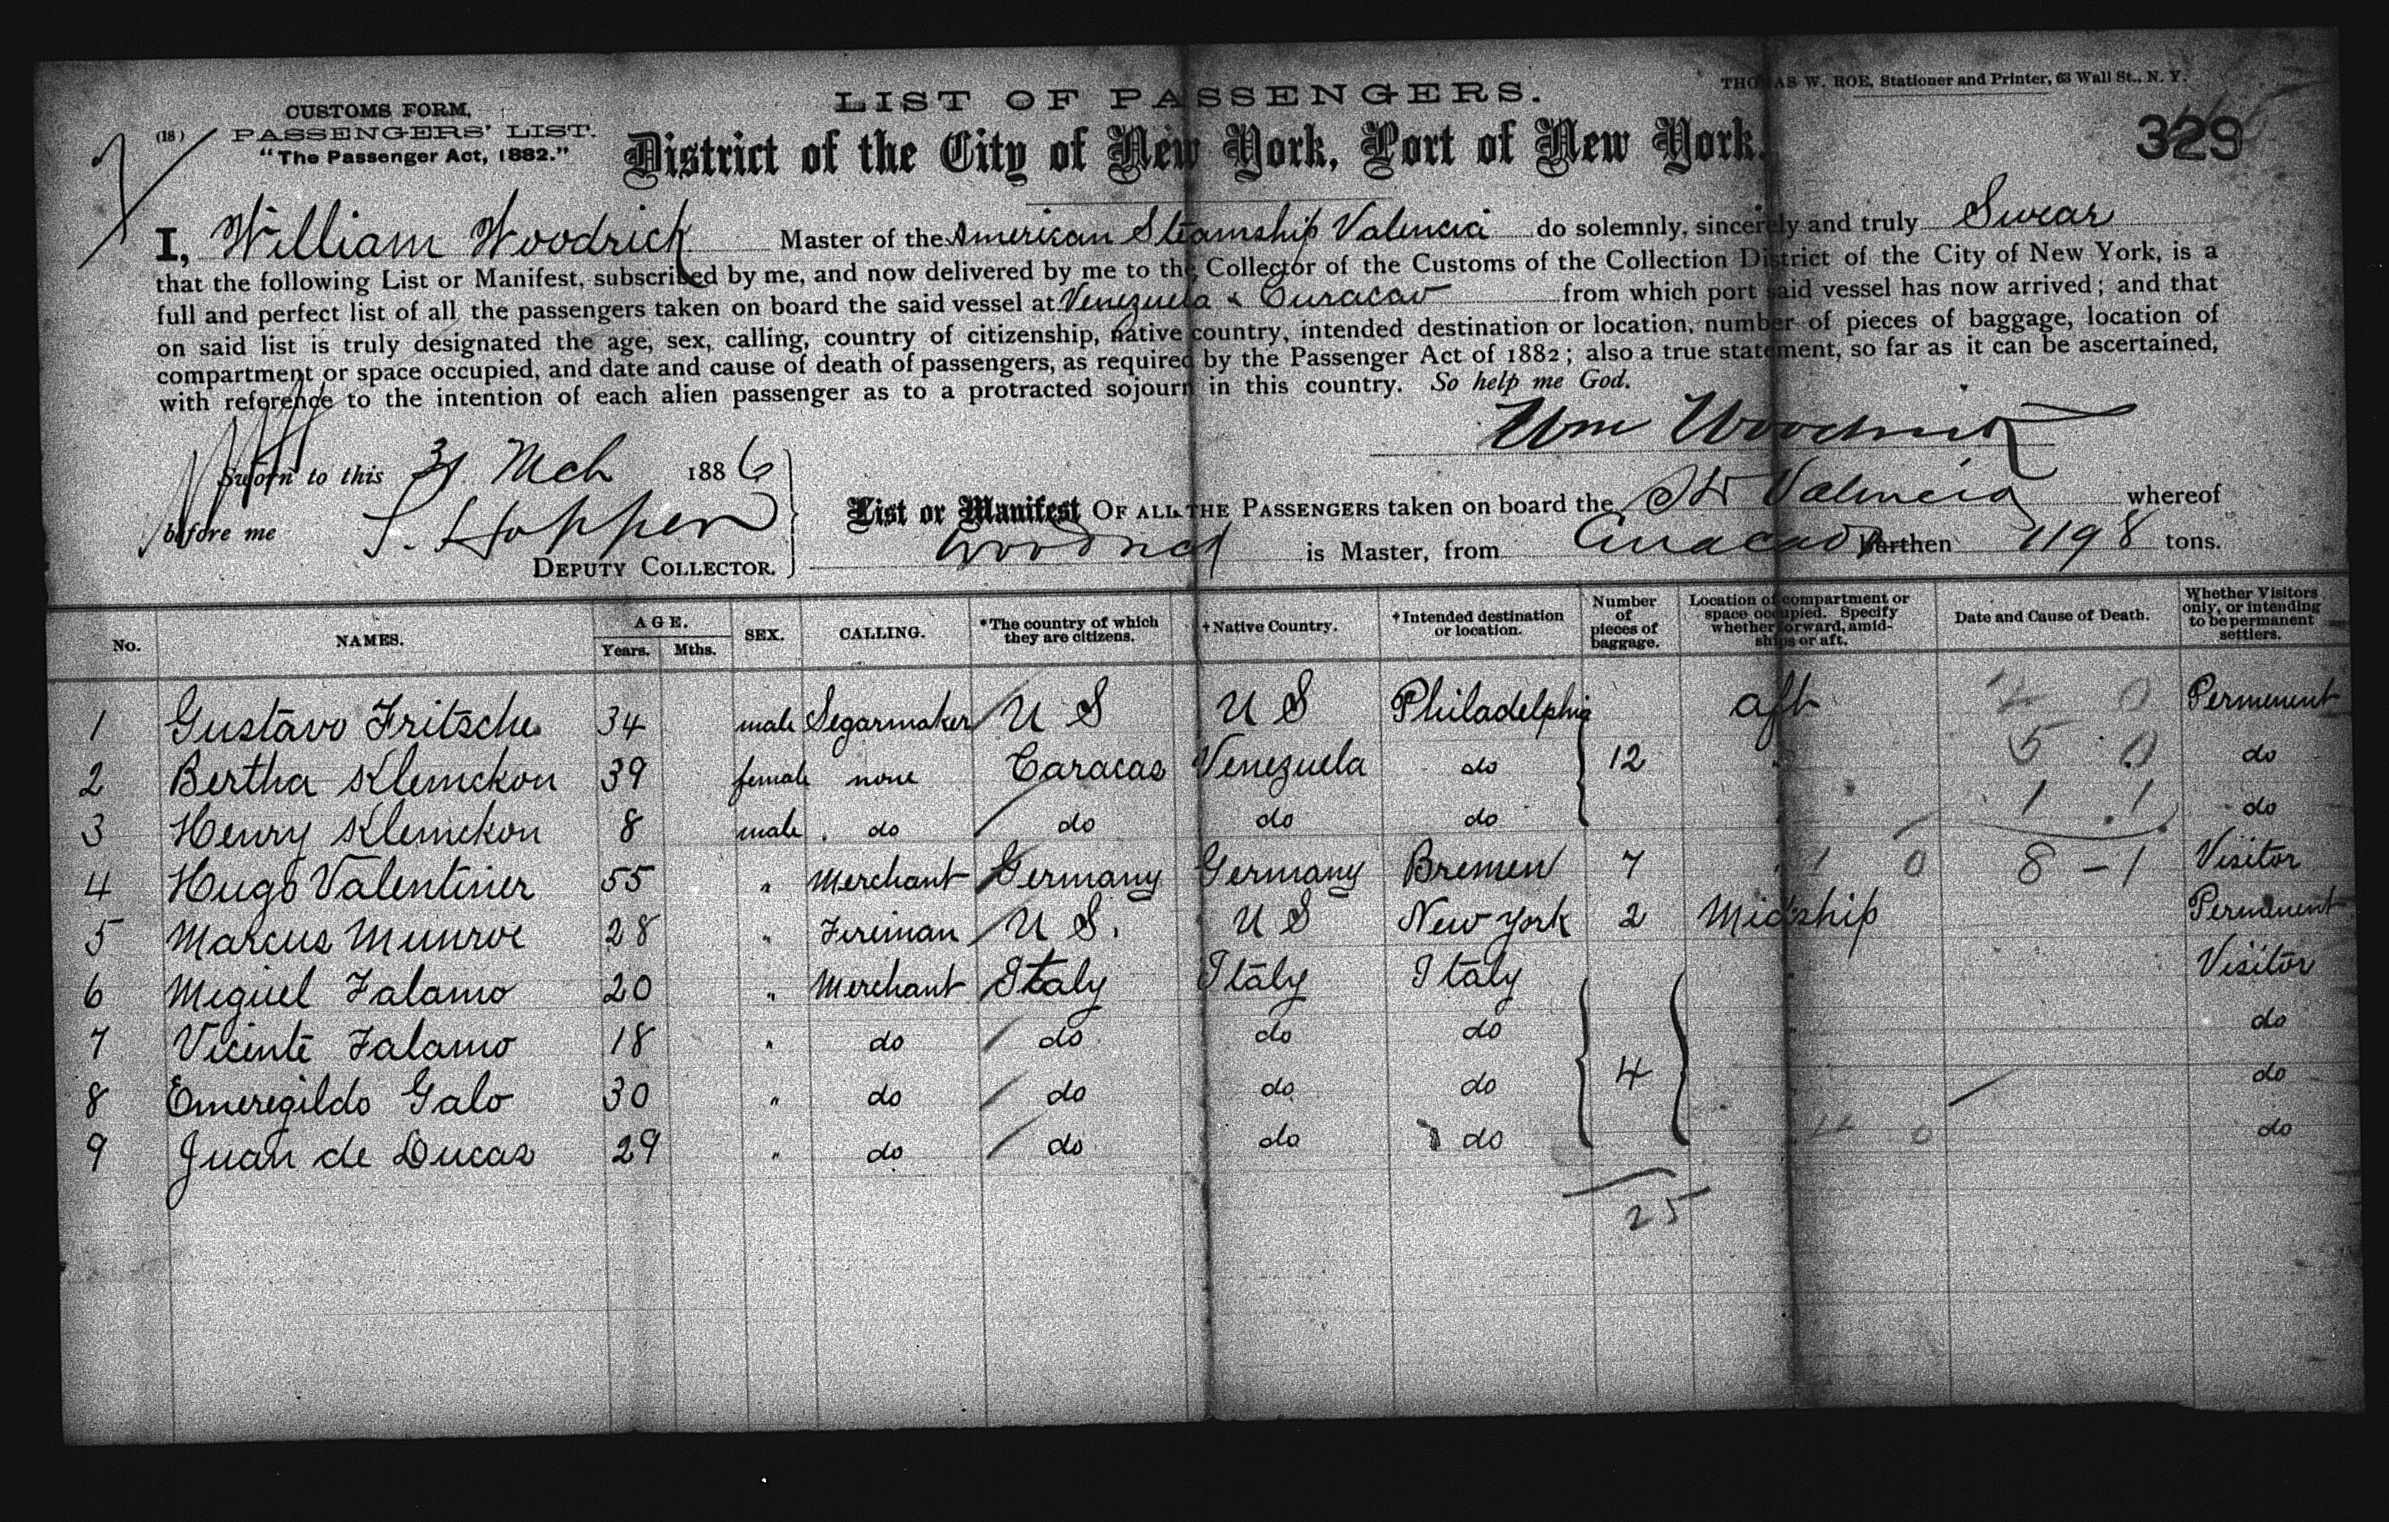 LIST OF PASSENGERS.
THOMAS W. ROE, Stationer and Printer, 63 Wall St., N. Y.
CUSTOMS FORM,
(18) PASSENGERS' LIST.
"The Passenger Act, 1882."
District of the City of New York, Port of New York.
329
I, William Woodrick Master of the American Steamship Valencia do solemnly, sincerely and truly Swear
that the following List or Manifest, subscribed by me, and now delivered by me to the Collector of the Customs of the Collection District of the City of New York, is a
full and perfect list of all the passengers taken on board the said vessel at Venezuela & Curacao from which port said vessel has now arrived; and that
on said list is truly designated the age, sex, calling, country of citizenship, native country, intended destination or location, number of pieces of baggage, location of
compartment or space occupied, and date and cause of death of passengers, as required by the Passenger Act of 1882; also a true statement, so far as it can be ascertained,
with reference to the intention of each alien passenger as to a protracted sojourn in this country. So help me God.
Wm Woodrick
Sworn to this 31 Mch 1886
before me S. Hopper
DEPUTY COLLECTOR.
List or Manifest OF ALL THE PASSENGERS taken on board the Str Valencia whereof
Woodrick is Master, from Curacao Burthen 1198 tons.
No. NAMES. AGE. Years. Mths. SEX. CALLING. *The country of which they are citizens. †Native Country. †Intended destination or location. Number of pieces of baggage. Location of compartment or space occupied. Specify whether forward, amidships or aft. Date and Cause of Death. Whether Visitors only, or intending to be permanent settlers.
1 Gustavo Fritsche 34 male Segarmaker U S U S Philadelphia aft Permenent
2 Bertha Klemckon 39 female none Caracas Venezuela do 12 5 0 do
3 Henry Klemckon 8 male do do do do 1 1 do
4 Hugo Valentiner 55 " Merchant Germany Germany Bremen 7 1 0 8 - 1 Visitor
5 Marcus Munroe 28 " Fireman U S. U S New York 2 Midship Permenent
6 Miguel Falamo 20 " Merchant Italy Italy Italy Visitor
7 Vicente Falamo 18 " do do do do do
8 Emeregildo Galo 30 " do do do do 4 do
9 Juan de Ducas 29 " do do do do do
25